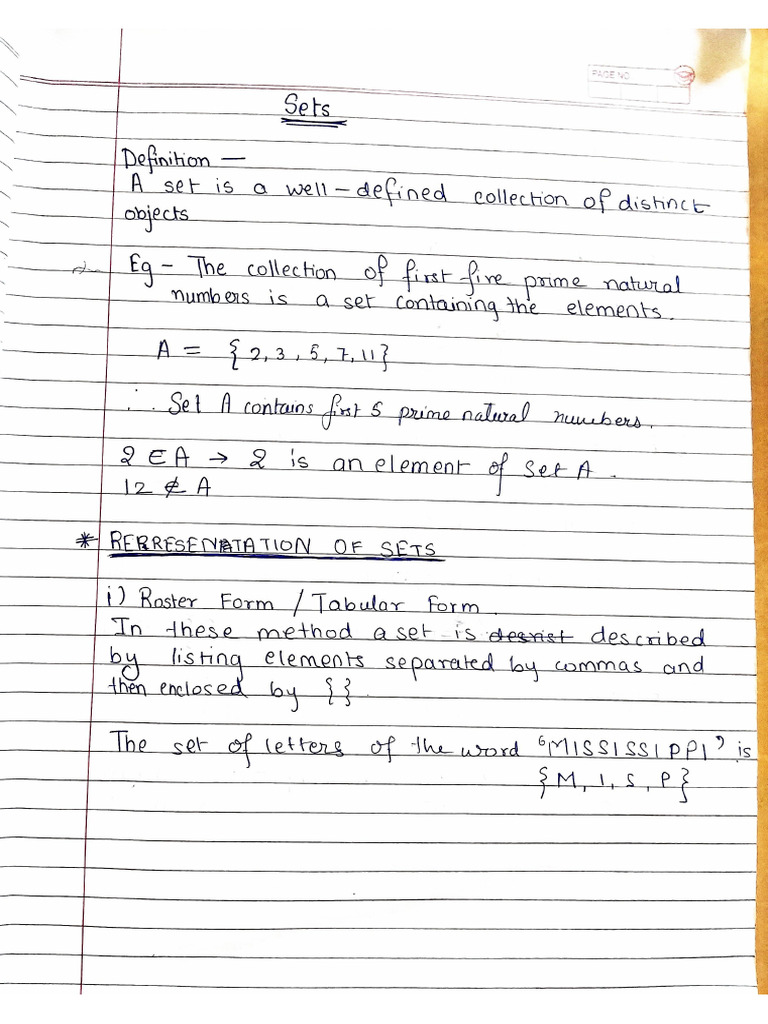 PAGE NO.
Sets
Definition —
A set is a well-defined collection of distinct
objects
Eg - The collection of first five prime natural
numbers is a set containing the elements.
A = { 2, 3, 5, 7, 11}
∴ Set A contains first 5 prime natural numbers.
2 ∈ A → 2 is an element of set A.
12 ∉ A
* REPRESENTATION OF SETS
i) Roster Form / Tabular form.
In these method a set is desrist described
by listing elements separated by commas and
then enclosed by { }.
The set of letters of the word 'MISSISSIPPI' is
{M, I, S, P}